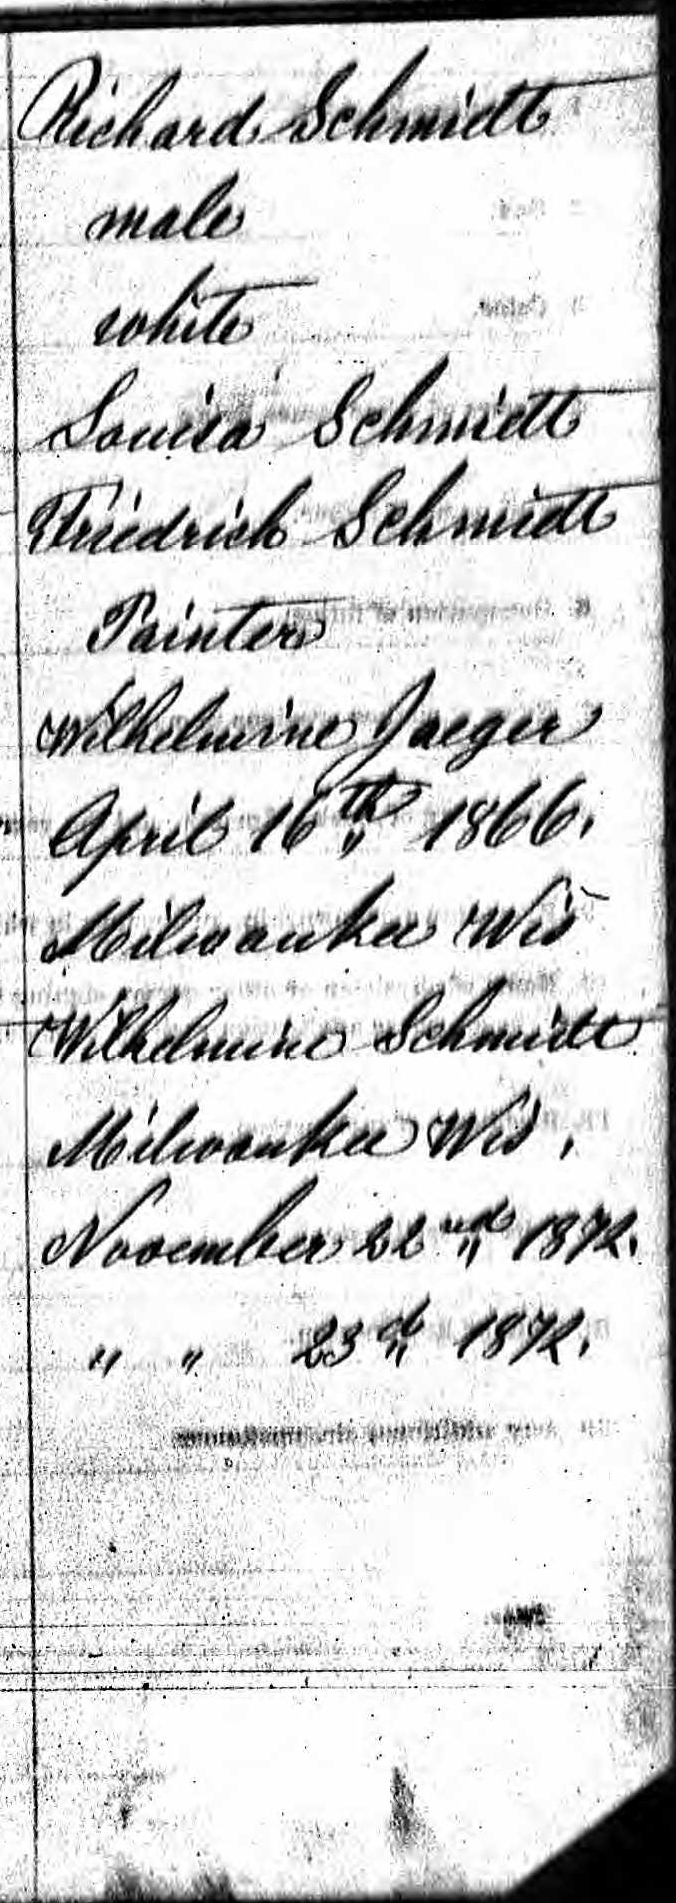 Richard Schmidt
male
white
Louisa Schmidt
Friedrich Schmidt
Painter
Wilhelmine Jaeger
April 16th 1866.
Milwaukee Wis
Wilhelmine Schmidt
Milwaukee Wis.
November 22nd 1872.
" " 23d 1872.